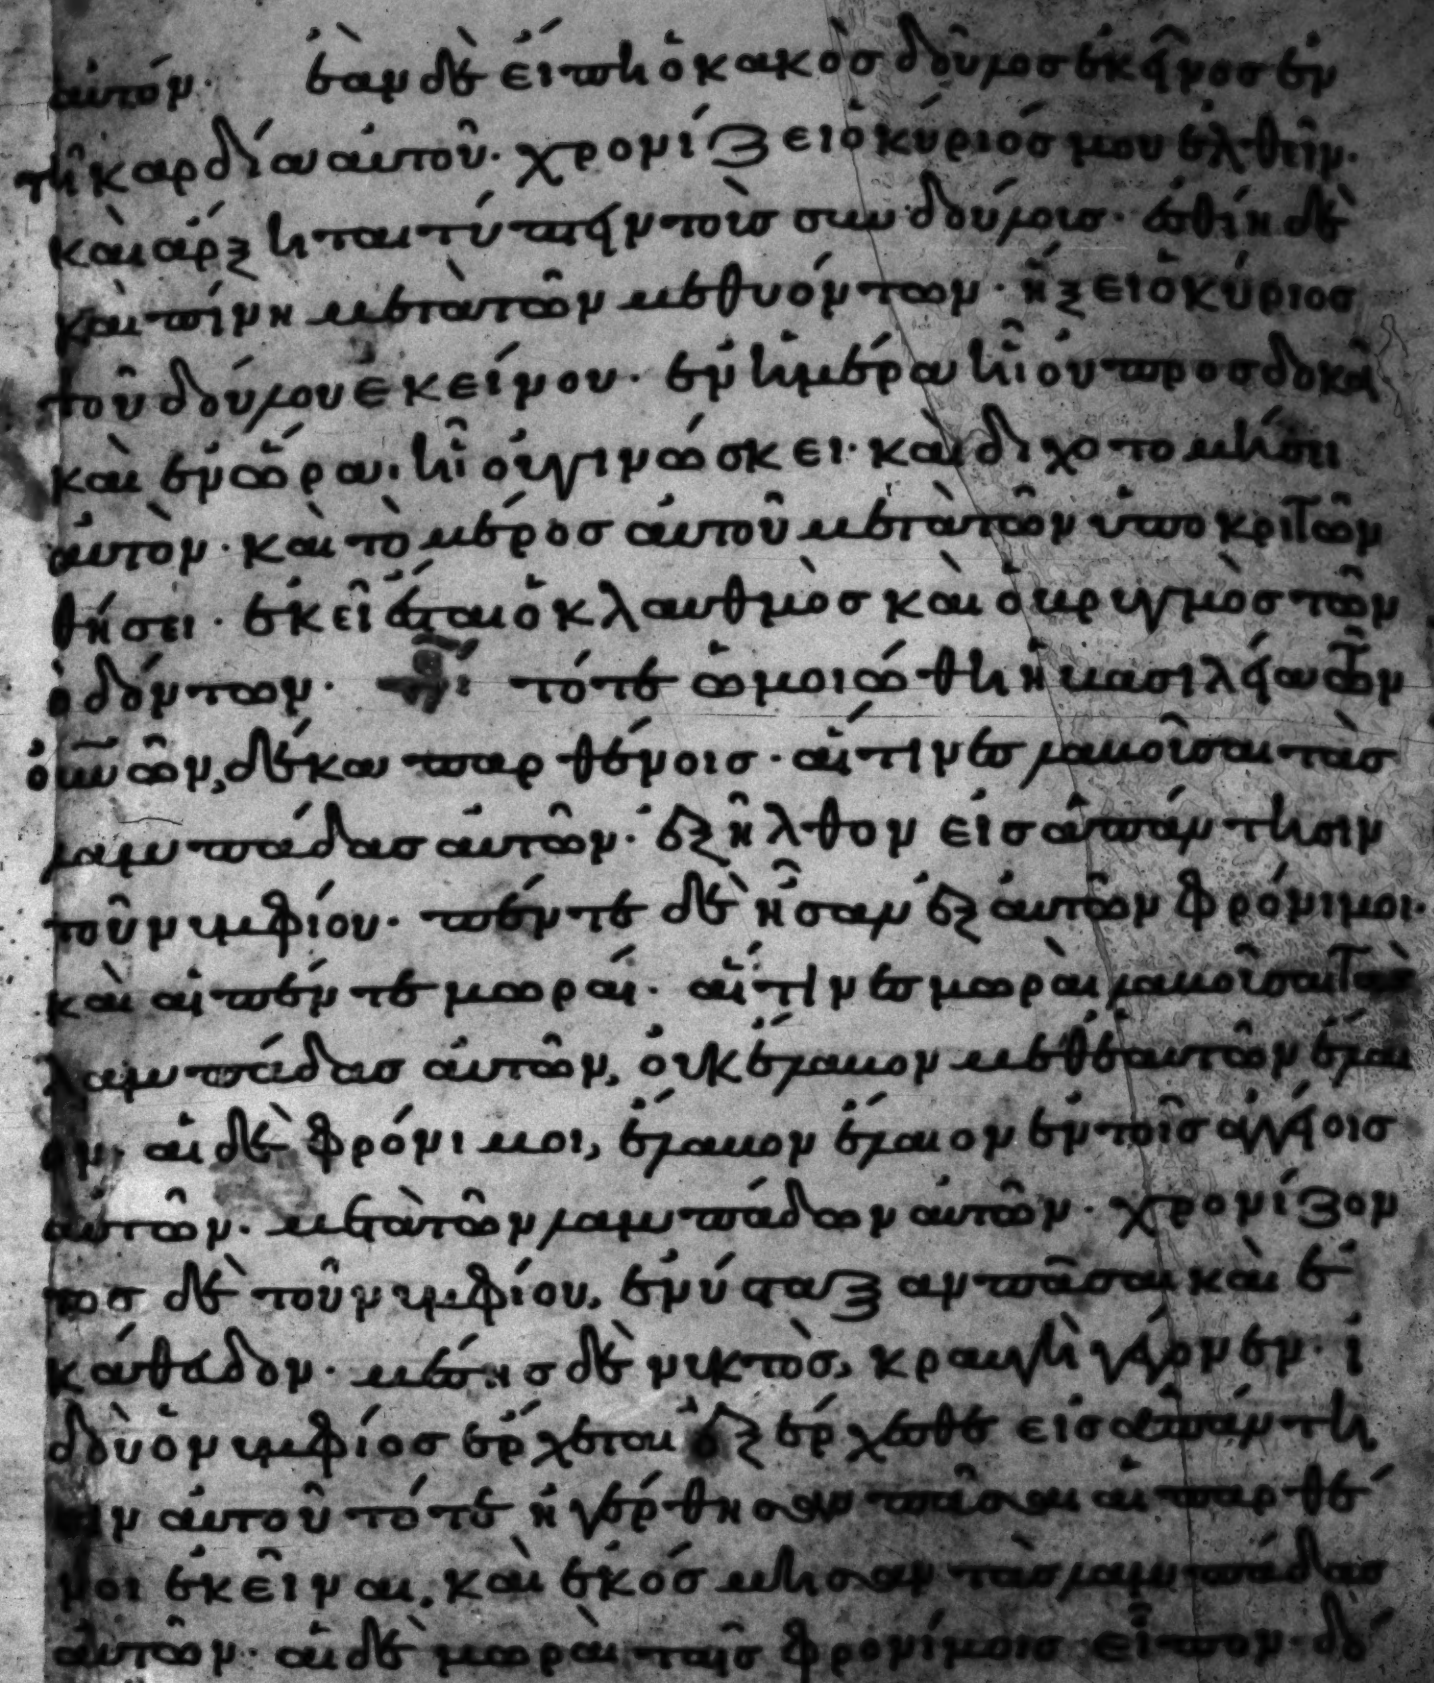 αὐτόν· ἐὰν δὲ εἴπη ὁ κακὸσ δοῦλοσ ἐκεῖνοσ ἐν
τῆ καρδία αὐτοῦ· χρονίζει ὁ κύριόσ μου ἐλθεῖν·
καὶ ἄρξηται τύπτειν τοὺσ συνδούλουσ· ἐσθίη δὲ
καὶ πίνη μετὰ τῶν μεθυόντων· ἥξει ὁ κύριοσ
τοῦ δούλου ἐκείνου· ἐν ἡμέρα ἧ οὐ προσδοκᾶ
καὶ ἐν ὥρα ἧ οὐ γινώσκει· καὶ διχοτομήσει
αὐτὸν· καὶ τὸ μέροσ αὐτοῦ μετὰ τῶν ὑποκριτῶν
θήσει· ἐκεῖ ἔσται ὁ κλαυθμὸσ καὶ ὁ βρυγμὸσ τῶν
ὀδόντων· τότε ὡμοιώθη ἡ βασιλεία τῶν
οὐνῶν, δέκα παρθένοισ· αἵτινεσ λαβοῦσαι τὰσ
λαμπάδασ αὐτῶν· ἐξῆλθον εἰσ ἀπάντησιν
τοῦ νυμφίου· πέντε δὲ ἦσαν ἐξ αὐτῶν φρόνιμοι·
καὶ αἱ πέντε μωραί· αἵτινεσ μωραὶ λαβοῦσαι τὰσ
λαμπάδασ αὐτῶν, οὐκ ἔλαβον μεθ ἑαυτῶν ἔλαι
ον· αἱ δὲ φρόνιμοι, ἔλαβον ἔλαιον ἐν τοῖσ ἀγγείοισ
αὐτῶν· μετὰ τῶν λαμπάδων αὐτῶν· χρονίζον
τοσ δὲ τοῦ νυμφίου, ἐνύσταξαν πᾶσαι καὶ ἐ
κάθευδον· μέσησ δὲ νυκτὸσ, κραυγὴ γέγονεν· ἰ
δοὺ ὁ νυμφίοσ ἔρχεται ἐξέρχεσθε εἰσ ἀπάντη
σιν αὐτοῦ τότε ἠγέρθησαν πᾶσαι αἱ παρθέ
νοι ἐκεῖναι, καὶ ἐκόσμησαν τὰσ λαμπάδασ
αὐτῶν· αἱ δὲ μωραὶ ταῖσ φρονίμοισ εἶπον· δό